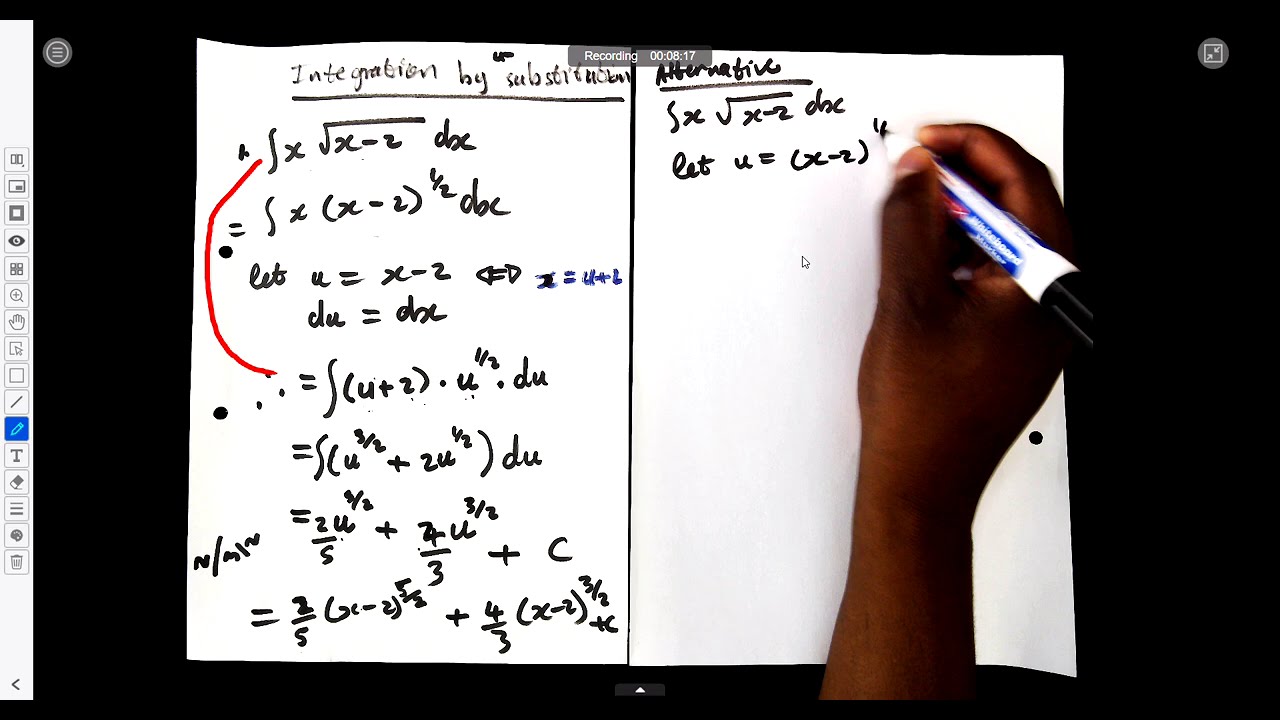 Recording 00:08:17
Integration by u- substitution
∫x √(x-2) dx
= ∫ x (x-2)^1/2 dx
let u = x-2 ⇔ x = u+2
du = dx
∴ = ∫(u+2) · u^1/2 · du
= ∫(u^3/2 + 2u^1/2) du
= 2u^3/2/5 + 4u^3/2/3 + C
= 2/5 (x-2)^5/2 + 4/3 (x-2)^3/2 + c
Alternative
∫x √(x-2) dx
let u = (x-2)
Whiteboard
Marker